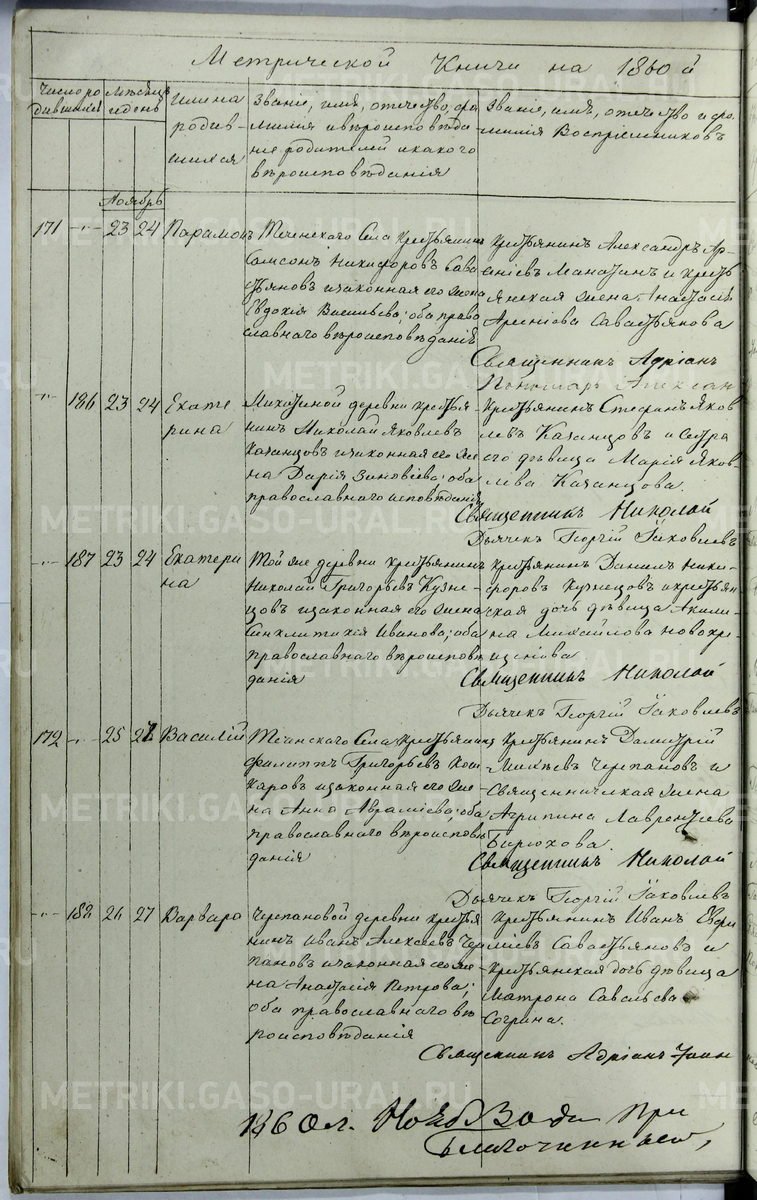 Метрической Книги на 1860 й
Число ро дившихся
Месѣцъ и день
Имена родив-шихся
Званіе, имя, отечество, фа-
милія и вѣроисповѣда-
ніе родителей и какого
вѣроисповѣданія
Званіе, имя, отечество и фа-
милія Воспріемниковъ
Ноябрь
171 -"- 23 24 Парамонъ
Теченскаго Села Крестьянинъ
Самсонъ Никифоровъ Сава
стьяновъ и законная его жена
Евдокія Васильева; оба право
славнаго вѣроисповѣданія
Крестьянинъ Александръ Ар-
сеніевъ Манатинъ и кресть
янская жена Анастасія
Арсеніева Савастьянова
Священникъ Адріанъ
Пономарь
-"- 186 23 24 Екате
рина
деревни крестья-
нинъ Николай Яковлевъ
Казанцовъ и законная его же
на Дарія Зиновіева; оба
православнаго исповѣданія
Крестьянинъ Стефанъ Яков
левъ Казанцовъ и Сестра
его дѣвица Марія Яков-
лева Казанцова.
Священникъ Николай
Дьячекъ Георгій Іаковлевъ
-"- 187 23 24 Екатери
на
Той же деревни крестьянинъ
Николай Григорьевъ Кузне-
цовъ и законная его жена
Синклитикія Иванова; оба
православнаго вѣроисповѣ
данія
Крестьянинъ Даніилъ Ники-
форовъ Кузнецовъ и крестьян
ская дочь дѣвица Акили-
на Михайлова Новокре-
щенова
Священникъ Николай
Дьячекъ Георгій Іаковлевъ
172 -"- 25 27 Василій
Теченскаго Села Крестьянинъ
Филиппъ Григорьевъ Кош
каровъ и законная его же-
на Анна Авраміева; оба
православнаго вѣроисповѣ
данія
Крестьянинъ Дмитрій
Черепановъ и
Священническая жена
Агрипина Лаврентіева
Бирюкова.
Священникъ Николай
Дьячекъ Георгій Іаковлевъ
-"- 188 26 27 Варвара
Черепановой деревни крестья
нинъ Иванъ Алексеевъ Чере
пановъ и законная его же-
на Анастасія Петрова;
оба православнаго вѣ
роисповѣданія
Крестьянинъ Иванъ Евфи
міевъ Савастьяновъ и
Крестьянская дочь дѣвица
Матрона Савельева
Согрина.
Священникъ Адріанъ
при
METRIKI.GASO-URAL.RU